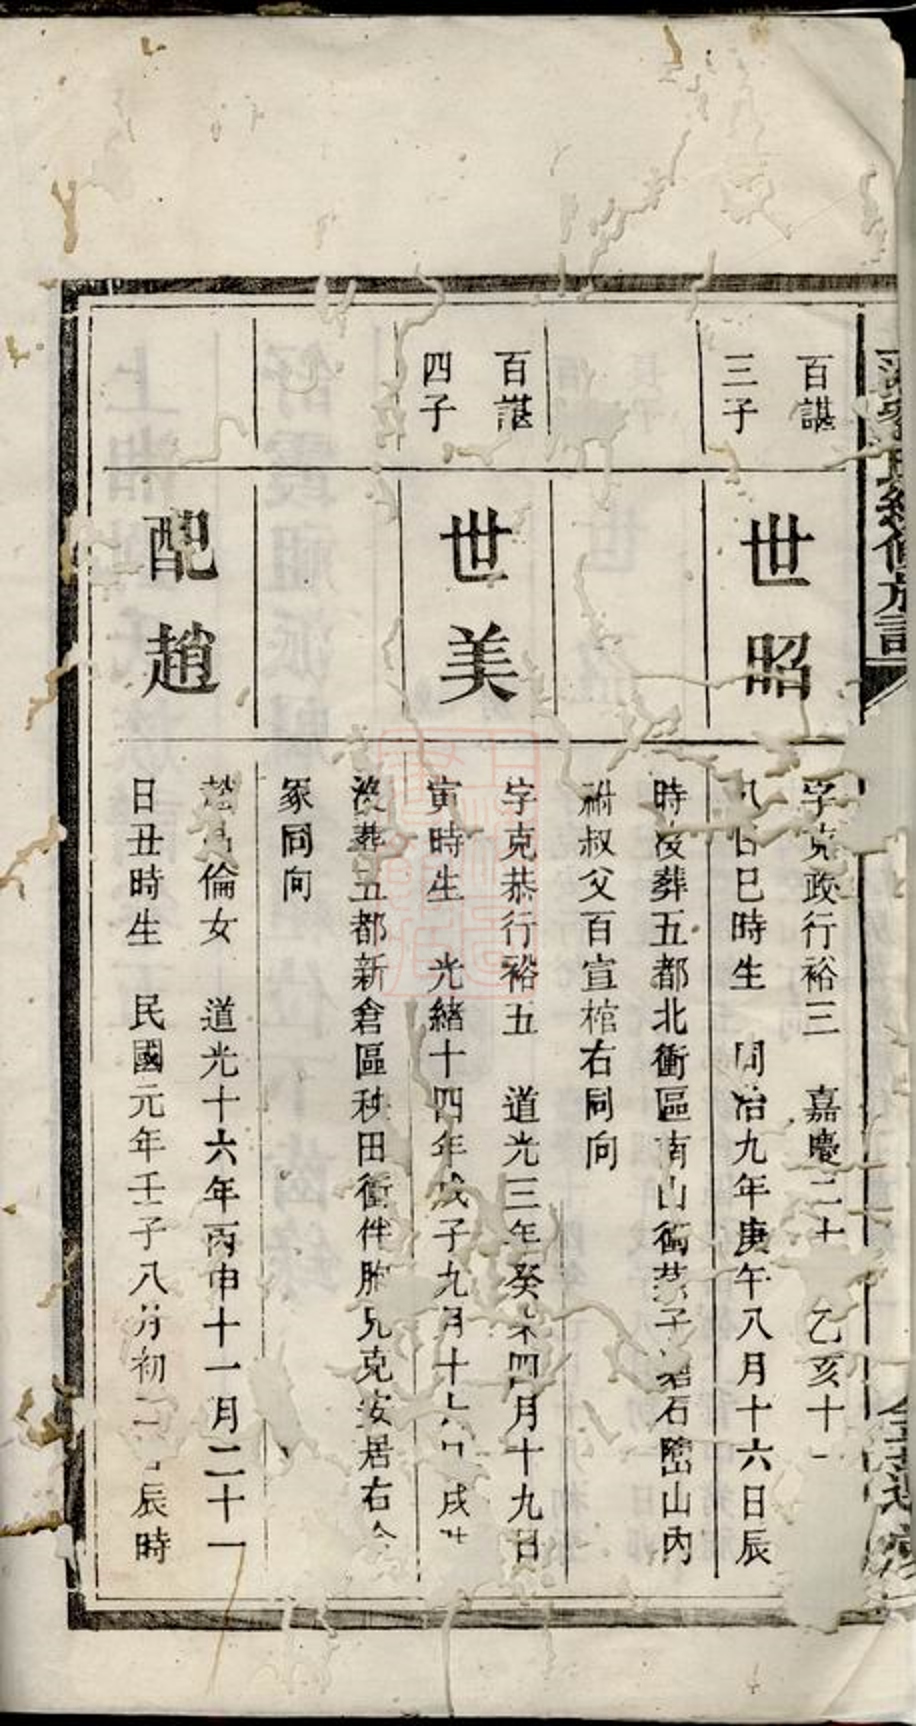 百諶
三子
世昭
字克政行裕三 嘉慶二十 乙亥十一
八日巳時生 同治九年庚午八月十六日辰
時沒葬五都北衝區南山衝 子 石 山內
祔叔父百宣棺右同向
百諶
四子
世美
字克恭行裕五 道光三年癸未四月十九日
寅時生 光緒十四年戊子九月十六日戌時
沒葬五都新倉區秧田衝伴胞兄克安居右合
冢同向
配趙
倫女 道光十六年丙申十一月二十一
日丑時生 民國元年壬子八月初二日辰時